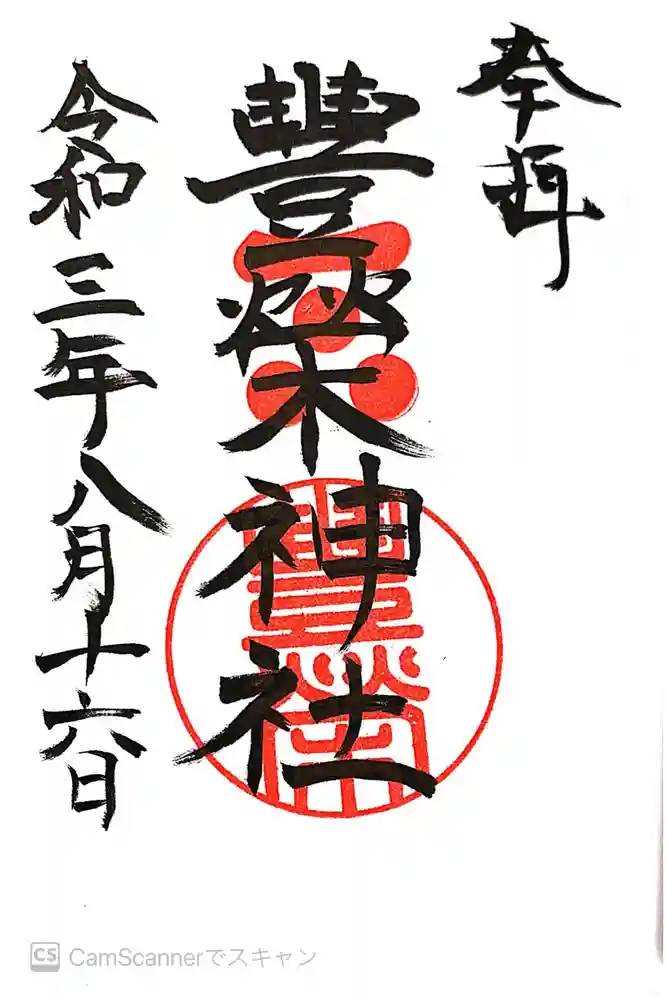 奉拝
豐榮神社
令和三年八月十六日
豐榮
CS CamScannerでスキャン